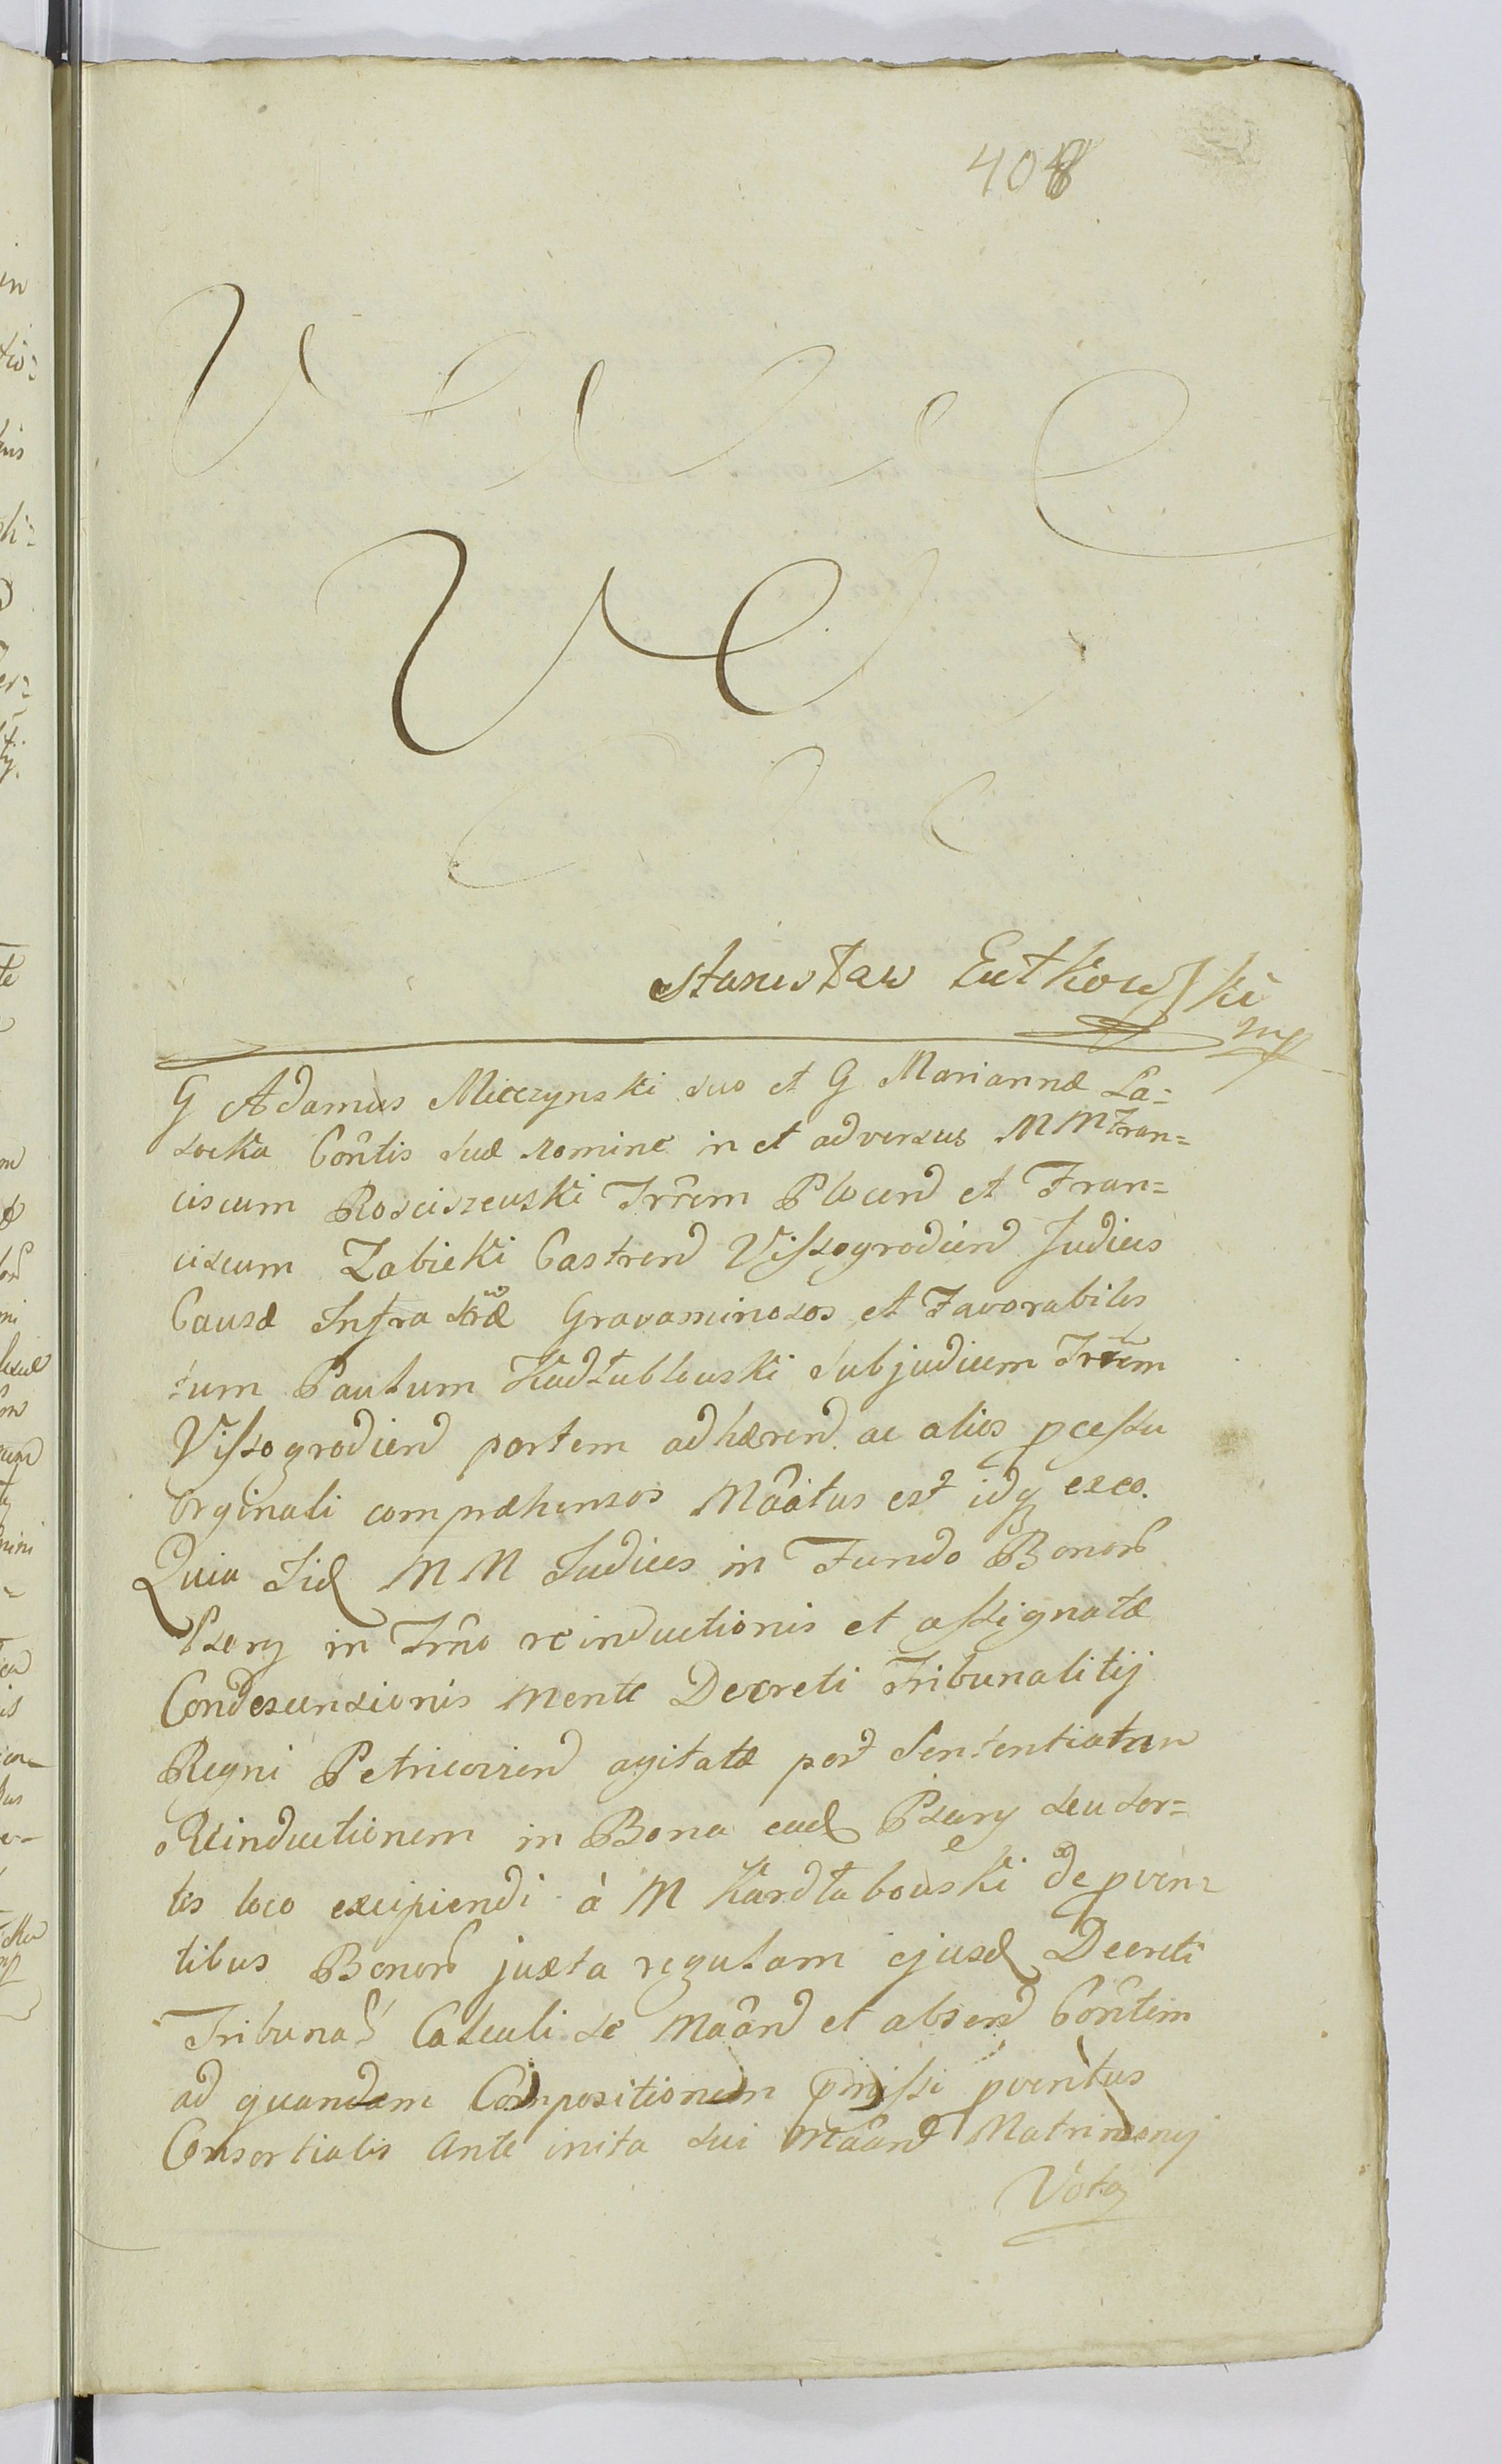 408
Stanisław Lutkowski
mp
G Adamus Mieczynski suo et G Mariannæ La=
socka Côntis suæ nomine in et adversus M M Fran=
ciscum Rosciszewski Trrem Plocen et Fran=
ciscum Zabicki Castren Vissogrodien Judices
Causæ Infra Gravaminosos et Favorabiles
tum Paulum Kadłublowski Subjudicem Trrem
Vissogrodien partem adhæren ac alios pcessu
orginali compræhensos Mââtus est idq exeo.
Quia Iid M M Judices in Fundo Bonor
Psary in Trno reinductionis et assignatæ
Condescensionis mente Decreti Tribunalitij
Regni Petricovien agitatæ post Sententiatam
Reinductionem in Bona ead Psary seu sor=
tis loco excipiendi à M Kardłabowski de pven=
tibus Bonor juxta regulam ejusd Decreti
Tribunal Calculi se Maand et absend Côntem
ad quandam Compositionem pmissi pventus
Consortialis Ante inita sui Maand Matrimonij
Vota